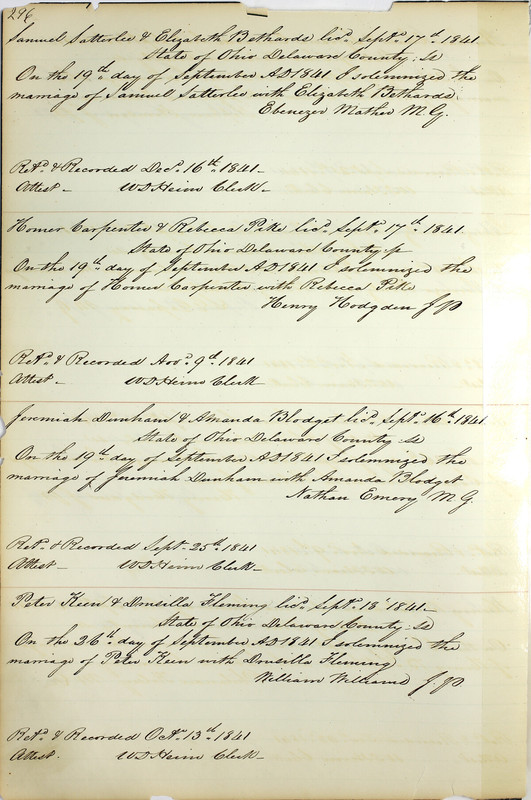 296
Samuel Satterlee & Elizabeth Bethards licd. Septr. 17th. 1841
State of Ohio Delaware County: ss
On the 19th. day of September AD 1841 I solemnized the
marriage of Samuel Satterlee with Elizabeth Bethards
Ebenezer Mather M. G.
Retd. & Recorded Decr. 16th. 1841-
Attest- W D Heim Clerk-
Homer Carpenter & Rebecca Pike licd. Septr. 17th. 1841
State of Ohio Delaware County ss
On the 19th. day of September AD 1841 I solemnized the
marriage of Homer Carpenter with Rebecca Pike
Henry Hodgden J. P.
Retd. & Recorded Novr. 9th. 1841
Attest- W D Heim Clerk
Jeremiah Dunham & Amanda Blodget licd. Septr. 16th. 1841
State of Ohio Delaware County ss
On the 19th. day of September AD 1841 I solemnized the
marriage of Jeremiah Dunham with Amanda Blodget
Nathan Emery M. G.
Retd. & Recorded Septr. 25th. 1841
Attest- W D Heim Clerk-
Peter Keen & Drusilla Fleming licd. Septr. 18' 1841-
State of Ohio Delaware County: ss
On the 26th. day of September AD 1841 I solemnized the
marriage of Peter Keen with Drusilla Fleming
William Williams J. P.
Retd. & Recorded Octr. 13th. 1841
Attest. W D Heim Clerk-